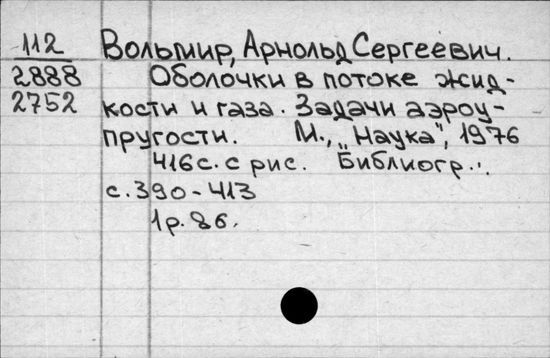 112 Вольмир, Арнольд Сергеевич.
2888 Оболочки в потоке жид-
2752 кости и газа. Задачи аэроу-
пругости. М., „Наука", 1976
416с. с рис. Библиогр.:
с. 390-413
1р. 86.